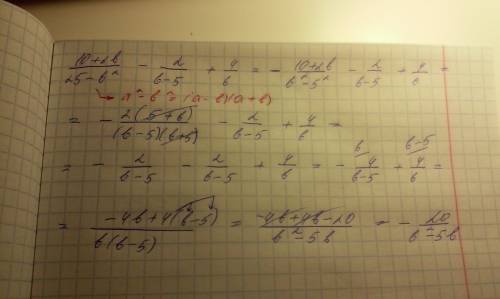 (10+2b)/(25-b²) - 2/(b-5) + 4/b = - (10+2b)/(b²-5²) - 2/(b-5) + 4/b =
a²-b²=(a-b)(a+b)
= - 2(5+b)/((b-5)(b+5)) - 2/(b-5) + 4/b =
= - 2/(b-5) - 2/(b-5) + 4/b = - 4/(b-5) (b + 4/b (b-5 =
= (-4b+4(b-5))/(b(b-5)) = (-4b+4b-20)/(b²-5b) = - 20/(b²-5b)